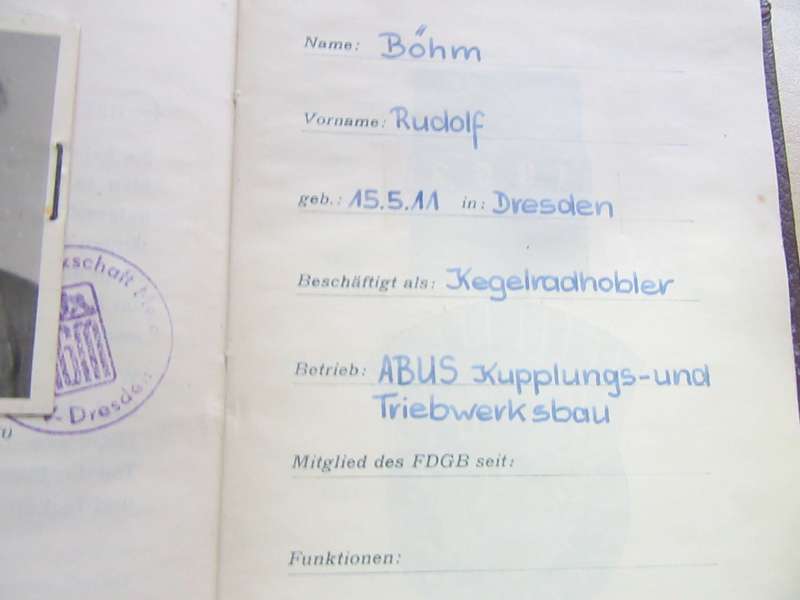 Name: Böhm
Vorname: Rudolf
geb.: 15.5.11 in: Dresden
Beschäftigt als: Kegelradhobler
Betrieb: ABUS Kupplungs-und
Triebwerksbau
Mitglied des FDGB seit:
Funktionen:
Dresden